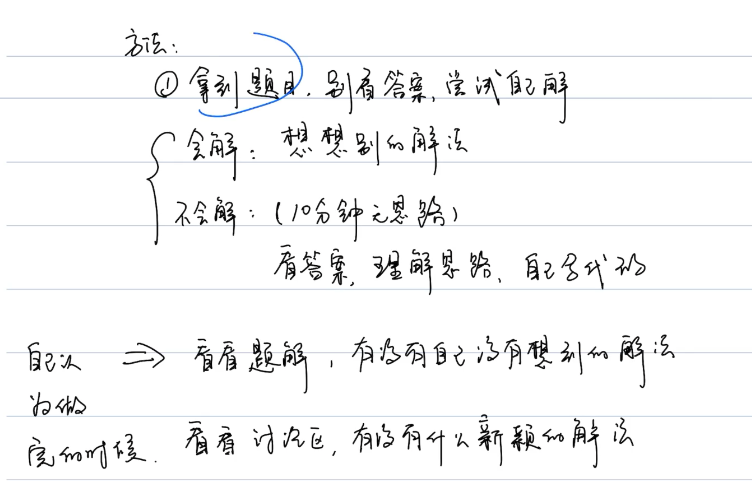 方法:
① 拿到题目, 别看答案, 尝试自己解
会解: 想想别的解法
不会解: (10分钟无思路)
看答案, 理解思路, 自己写代码
自己认为做完的时候. ⇒ 看看题解, 有没有自己没有想到的解法
看看讨论区, 有没有什么新颖的解法